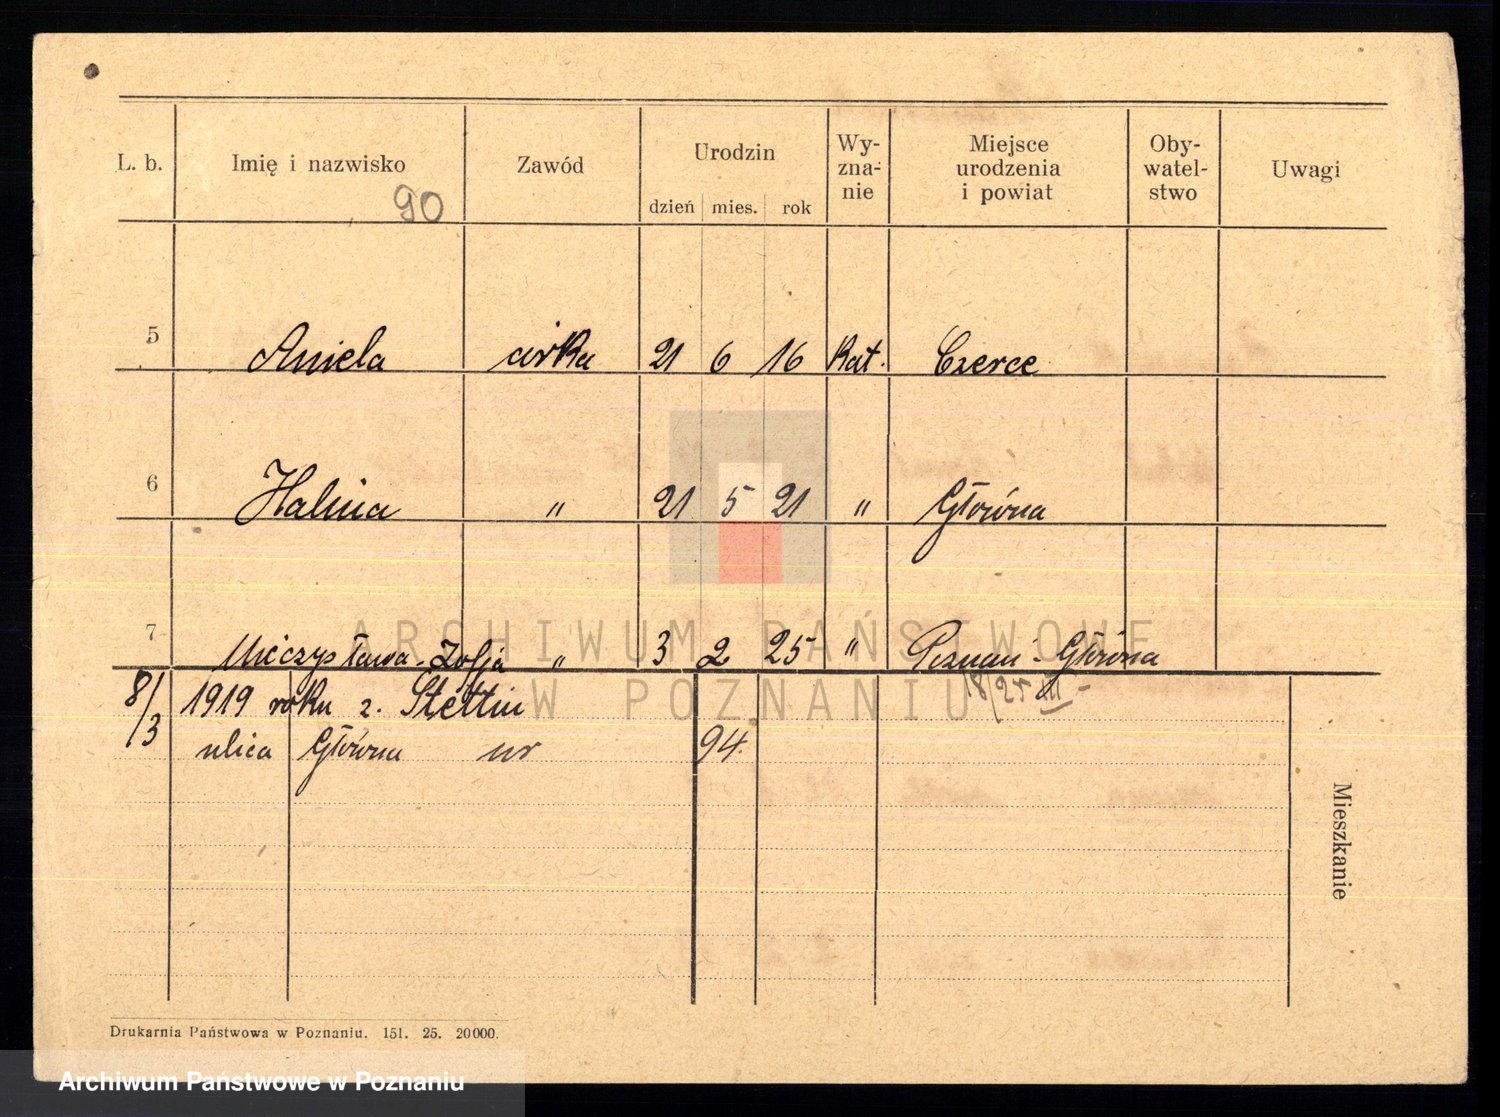 L. b. Imię i nazwisko Zawód Urodzin dzień mies. rok Wy-zna-nie Miejsce urodzenia i powiat Oby-watel-stwo Uwagi
90
5 Aniela córka 21 6 16 Kat. Czerce
6 Halina " 21 5 21 " Główna
7 Mieczysława-Zofja " 3 2 25 " Poznań-Główna
18/25 III -
8/3 1919 roku z. Stettin
ulica Główna nr 94.
Mieszkanie
Drukarnia Państwowa w Poznaniu. 151. 25. 20000.
ARCHIWUM PAŃSTWOWE
W POZNANIU
Archiwum Państwowe w Poznaniu